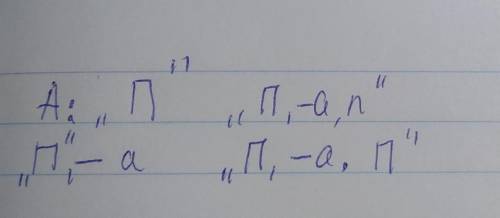 А: „П" „П,-а,п"
„П",- а „П,-а. П"